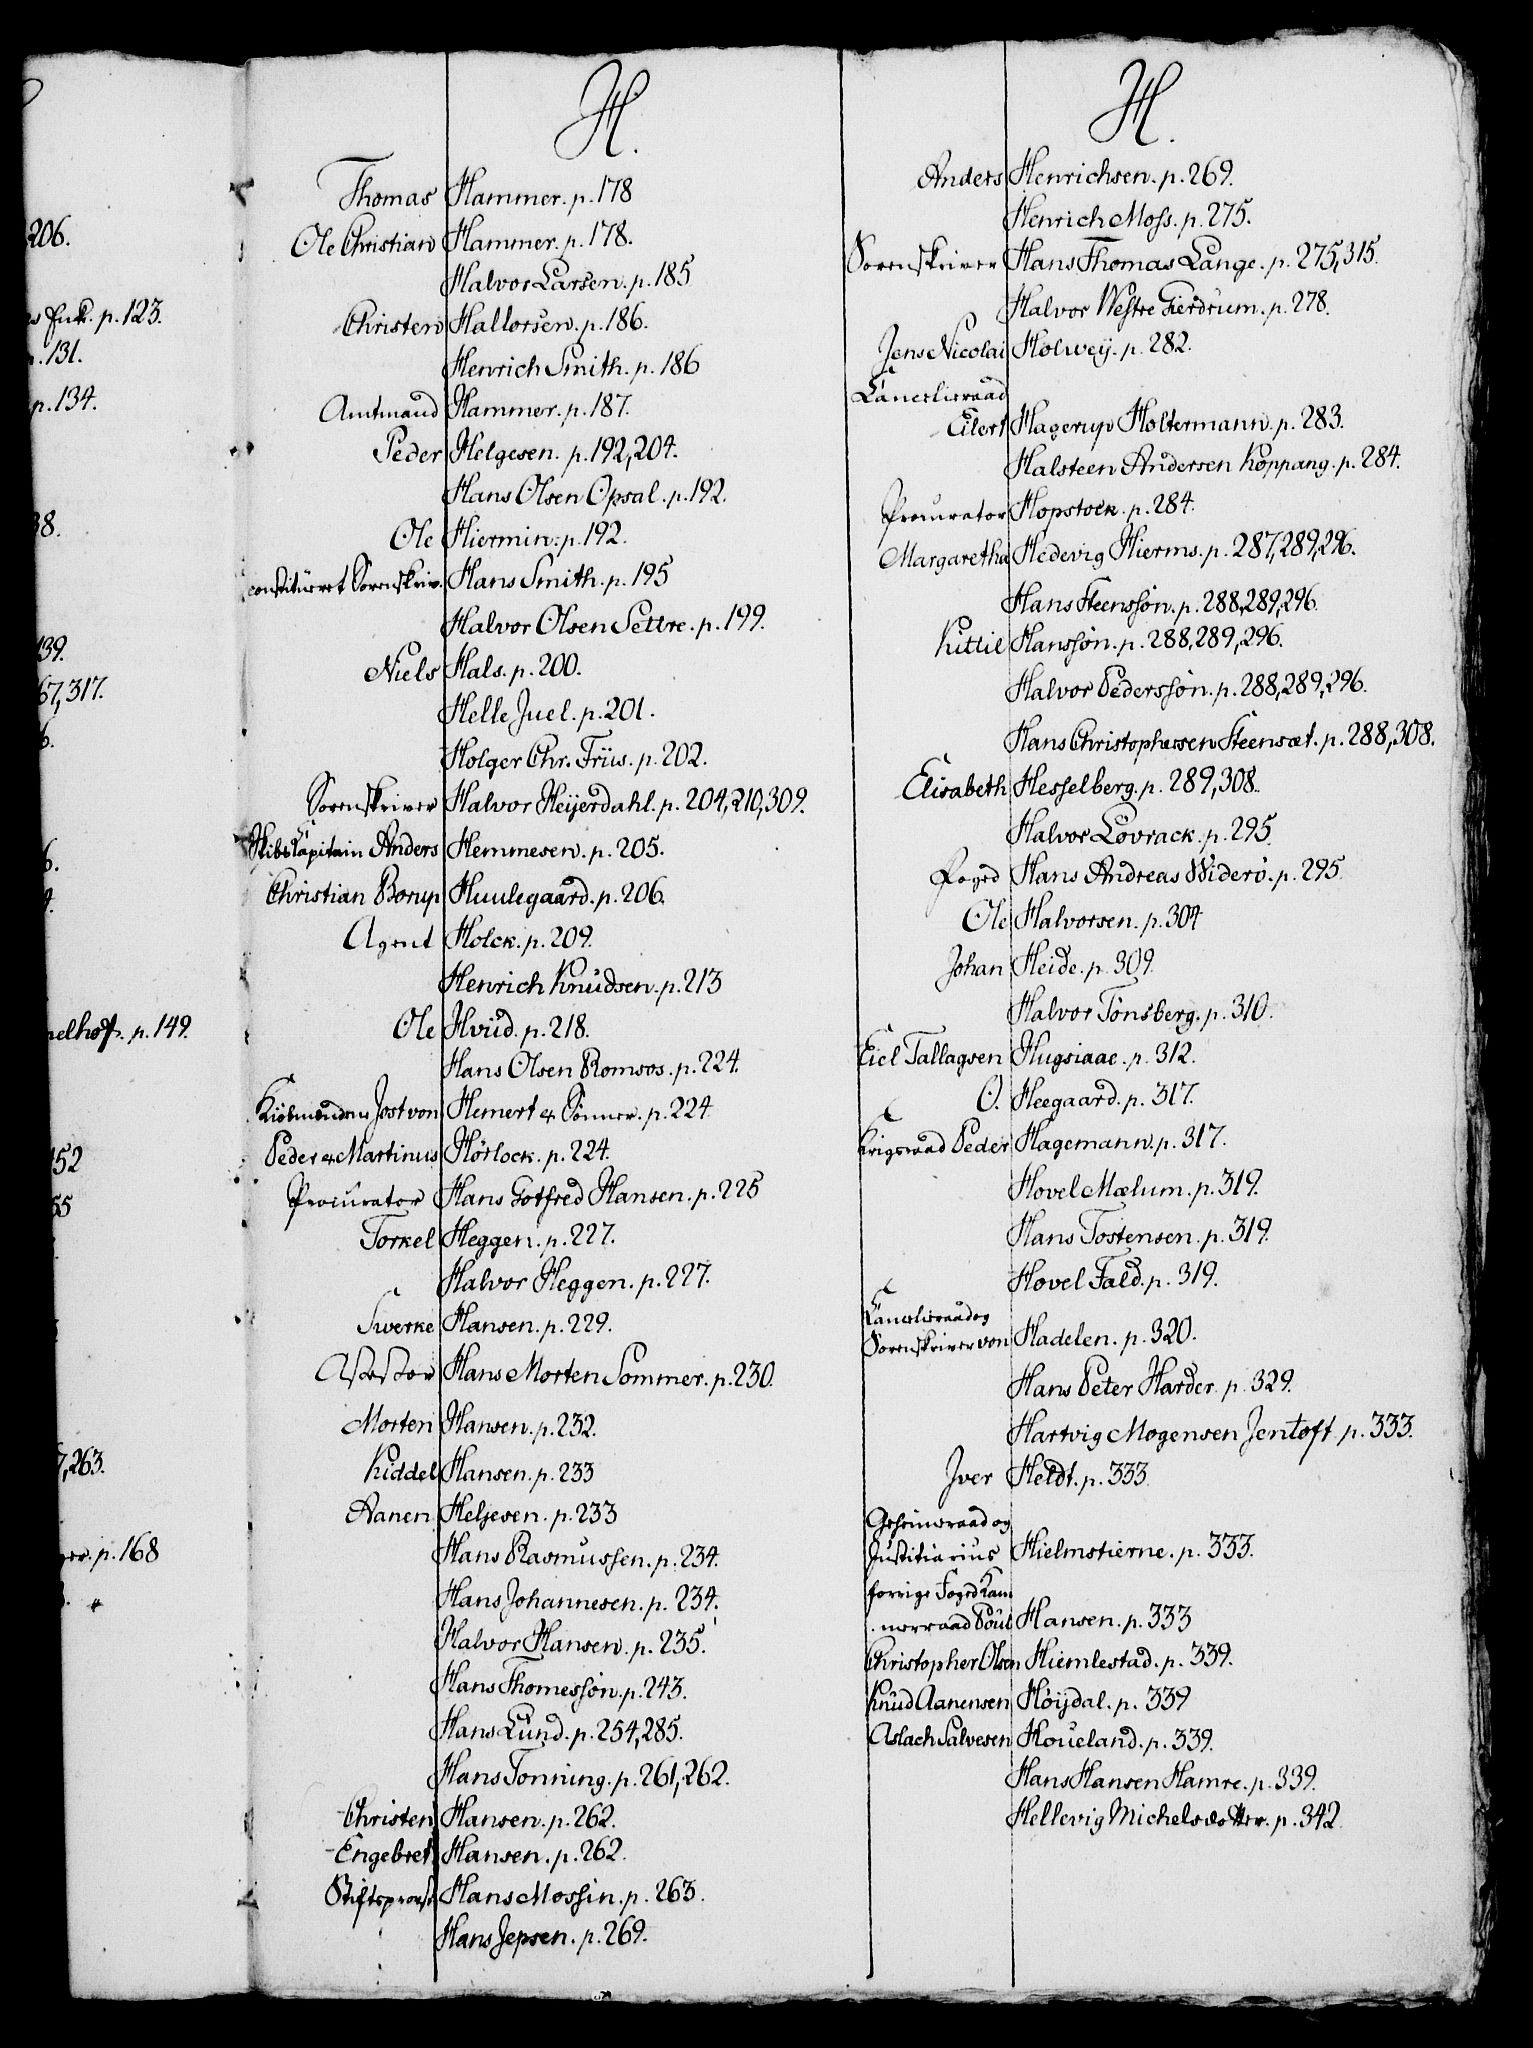 206.
Enk. p. 123.
131.
p. 134.
38.
139.
67, 317.
6.
6.
4.
nelhoff. p. 149.
152
55
7, 263.
p. 168
H.
Thomas Hammer. p. 178
Ole Christian Hammer. p. 178.
Halvor Larsen. p. 185
Christen Hallorsen. p. 186.
Henrich Smith. p. 186
Amtmand Hammer. p. 187.
Peder Helgesen. p. 192, 204.
Hans Olsen Opsal. p. 192.
Ole Hiermin. p. 192.
constitueret Sorenskriv. Hans Smith. p. 195
Halvor Olsen Settre. p. 199.
Niels Hals. p. 200.
Helle Juel. p. 201.
Holger Chr. Friis. p. 202.
Sorenskriver Halvor Heijerdahl. p. 204, 210, 309.
Skibs Capitain Anders Hemmesen. p. 205.
Christian Borup Huulegaard. p. 206.
Agent Holck. p. 209.
Henrich Knudsen. p. 213
Ole Hviid. p. 218.
Hans Olsen Romsos. p. 224.
Kiöbmændene Jost von Hemert & Sönner. p. 224
Peder & Martinus Hörlock. p. 224.
Procurator Hans Gotfred Hansen. p. 225
Torkel Heggen. p. 227.
Halvor Heggen. p. 227.
Swerke Hansen. p. 229.
Assessor Hans Morten Sommer. p. 230.
Morten Hansen. p. 232.
Kiddel Hansen. p. 233
Aanen Heljesen. p. 233
Hans Rasmussen. p. 234.
Hans Johannesen. p. 234.
Halvor Hansen. p. 235.
Hans Thomessøn. p. 243.
Hans Lund. p. 254, 285.
Hans Tonning. p. 261, 262.
Christen Hansen. p. 262.
Engebret Hansen. p. 262.
Stiftsprovst Hans Mossin. p. 263.
Hans Jepsen. p. 269.
H.
Anders Henrichsen. p. 269.
Henrich Moss. p. 275.
Sorenskriver Hans Thomas Lange. p. 275, 315.
Halvor Westre Gierdrum. p. 278.
Jens Nicolai Holweÿ. p. 282.
Cancelieraad
Eilert Hagerup Holtermann. p. 283.
Halsteen Andersen Koppang. p. 284.
Procurator Hopstock. p. 284.
Margaretha Hedevig Hierms. p. 287, 289, 296.
Hans Steenssøn. p. 288, 289, 296.
Kittil Hanssøn. p. 288, 289, 296.
Halvor Pederssøn. p. 288, 289, 296.
Hans Christophersen Steensæt. p. 288, 308.
Elisabeth Hesselberg. p. 289, 308.
Halvor Lovrack. p. 295.
Foged Hans Andreas Widerö. p. 295.
Ole Halvorsen. p. 304
Johan Heide. p. 309.
Halvor Tönsberg. p. 310.
Eiel Tallagsen Hugsiaae. p. 312.
O. Heegaard. p. 317.
Krigsraad Peder Hagemann. p. 317.
Hovel Mælum. p. 319.
Hans Tostensen. p. 319.
Hovel Fald. p. 319.
Cancelieraad og
Sorenskriver von Hadelen. p. 320.
Hans Peter Harder. p. 329.
Hartvig Mogensen Jentoft. p. 333.
Iver Heldt. p. 333.
Geheimeraad og
Justitiarius Hielmstierne. p. 333.
forrige Foged Kam
merraad Poul Hansen. p. 333
Christopher Olsen Hiemlestad. p. 339.
Knud Aanensen Höijdal. p. 339
Aslach Salvesen Houeland. p. 339.
Hans Hansen Hamre. p. 339.
Hellevig Michelsdotter. p. 342